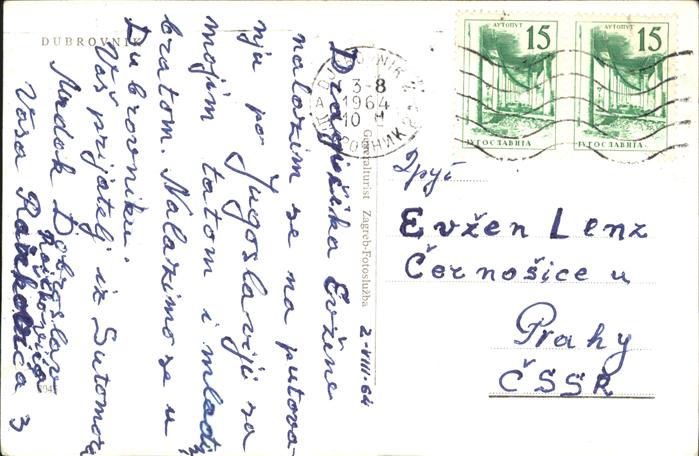 DUBROVNIK
Dragi čika Evžene
nalazim se na putova-
nju po Jugoslaviji sa
mojim tatom i mlađi
bratom. Nalazimo se u
Dubrovniku.
Vaš prijatelj iz Sutomora
Dobroslav
Vasa Raičkovića 3
2-VIII-64
Generalturist Zagreb-Fotoslužba
DUBROVNIK 2
3-8
1964
10
ДУБРОВНИК 2
АУТОПУТ
15
ЈУГОСЛАВИЈА
АУТОПУТ
15
ЈУГОСЛАВИЈА
Evžen Lenz
Černošice u
Prahy
ČSSR